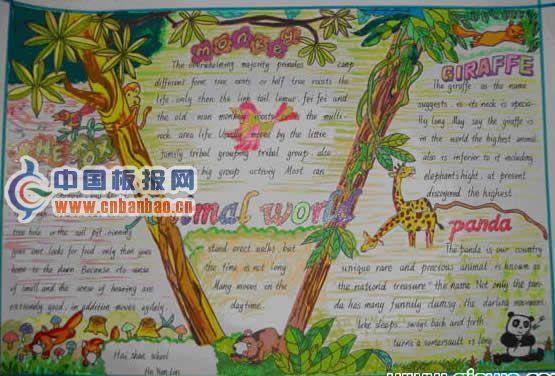 MONKEY
The overwhelming majority primates camp
different form tree roosts or half tree roosts the
life. only then the ring tail lemur. fei fei and
the old man monkey roosts the multi-
rock area life. Usually move by the little
family tribal grouping tribal group. also
big group activity. Most can
stand erect walks, but
the time is not long
Many moves in the
daytime.
THE FOX
中国板报网
www.cnbanbao.cn
animal world
tree hole or the soil pit. evening
goes out looks for food. only then goes
home to the dawn. Because its sense
of smell and the sense of hearing are
extremely good, in addition moves agilely.
Hai shan school
GIRAFFE
The giraffe as the name
suggests, is its neck is specia-
lly long. May say the giraffe is
in the world the highest animal.
also is inferior to it including
elephant's hight. at present
discovered the highest
panda
The panda is our country
unique rare and precious animal. is known as
the national treasure "the name. Not only the pan-
da has many funnily clumsy. the darling movement,
like sleeps. sways back and forth
turns a somersault is long